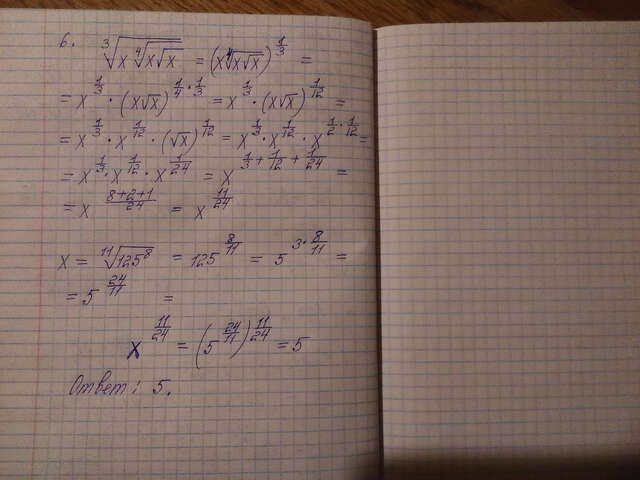 6. ∛(x ∜(x√x)) = (x ∜(x√x))^(1/3) =
= x^(1/3) · (x√x)^(1/4 · 1/3) = x^(1/3) · (x√x)^(1/12) =
= x^(1/3) · x^(1/12) · (√x)^(1/12) = x^(1/3) · x^(1/12) · x^(1/2 · 1/12) =
= x^(1/3) · x^(1/12) · x^(1/24) = x^(1/3 + 1/12 + 1/24) =
= x^((8+2+1)/24) = x^(11/24)
x = ¹¹√(125⁸) = 125^(8/11) = 5^(3 · 8/11) =
= 5^(24/11) =
x^(11/24) = (5^(24/11))^(11/24) = 5
Ответ: 5.